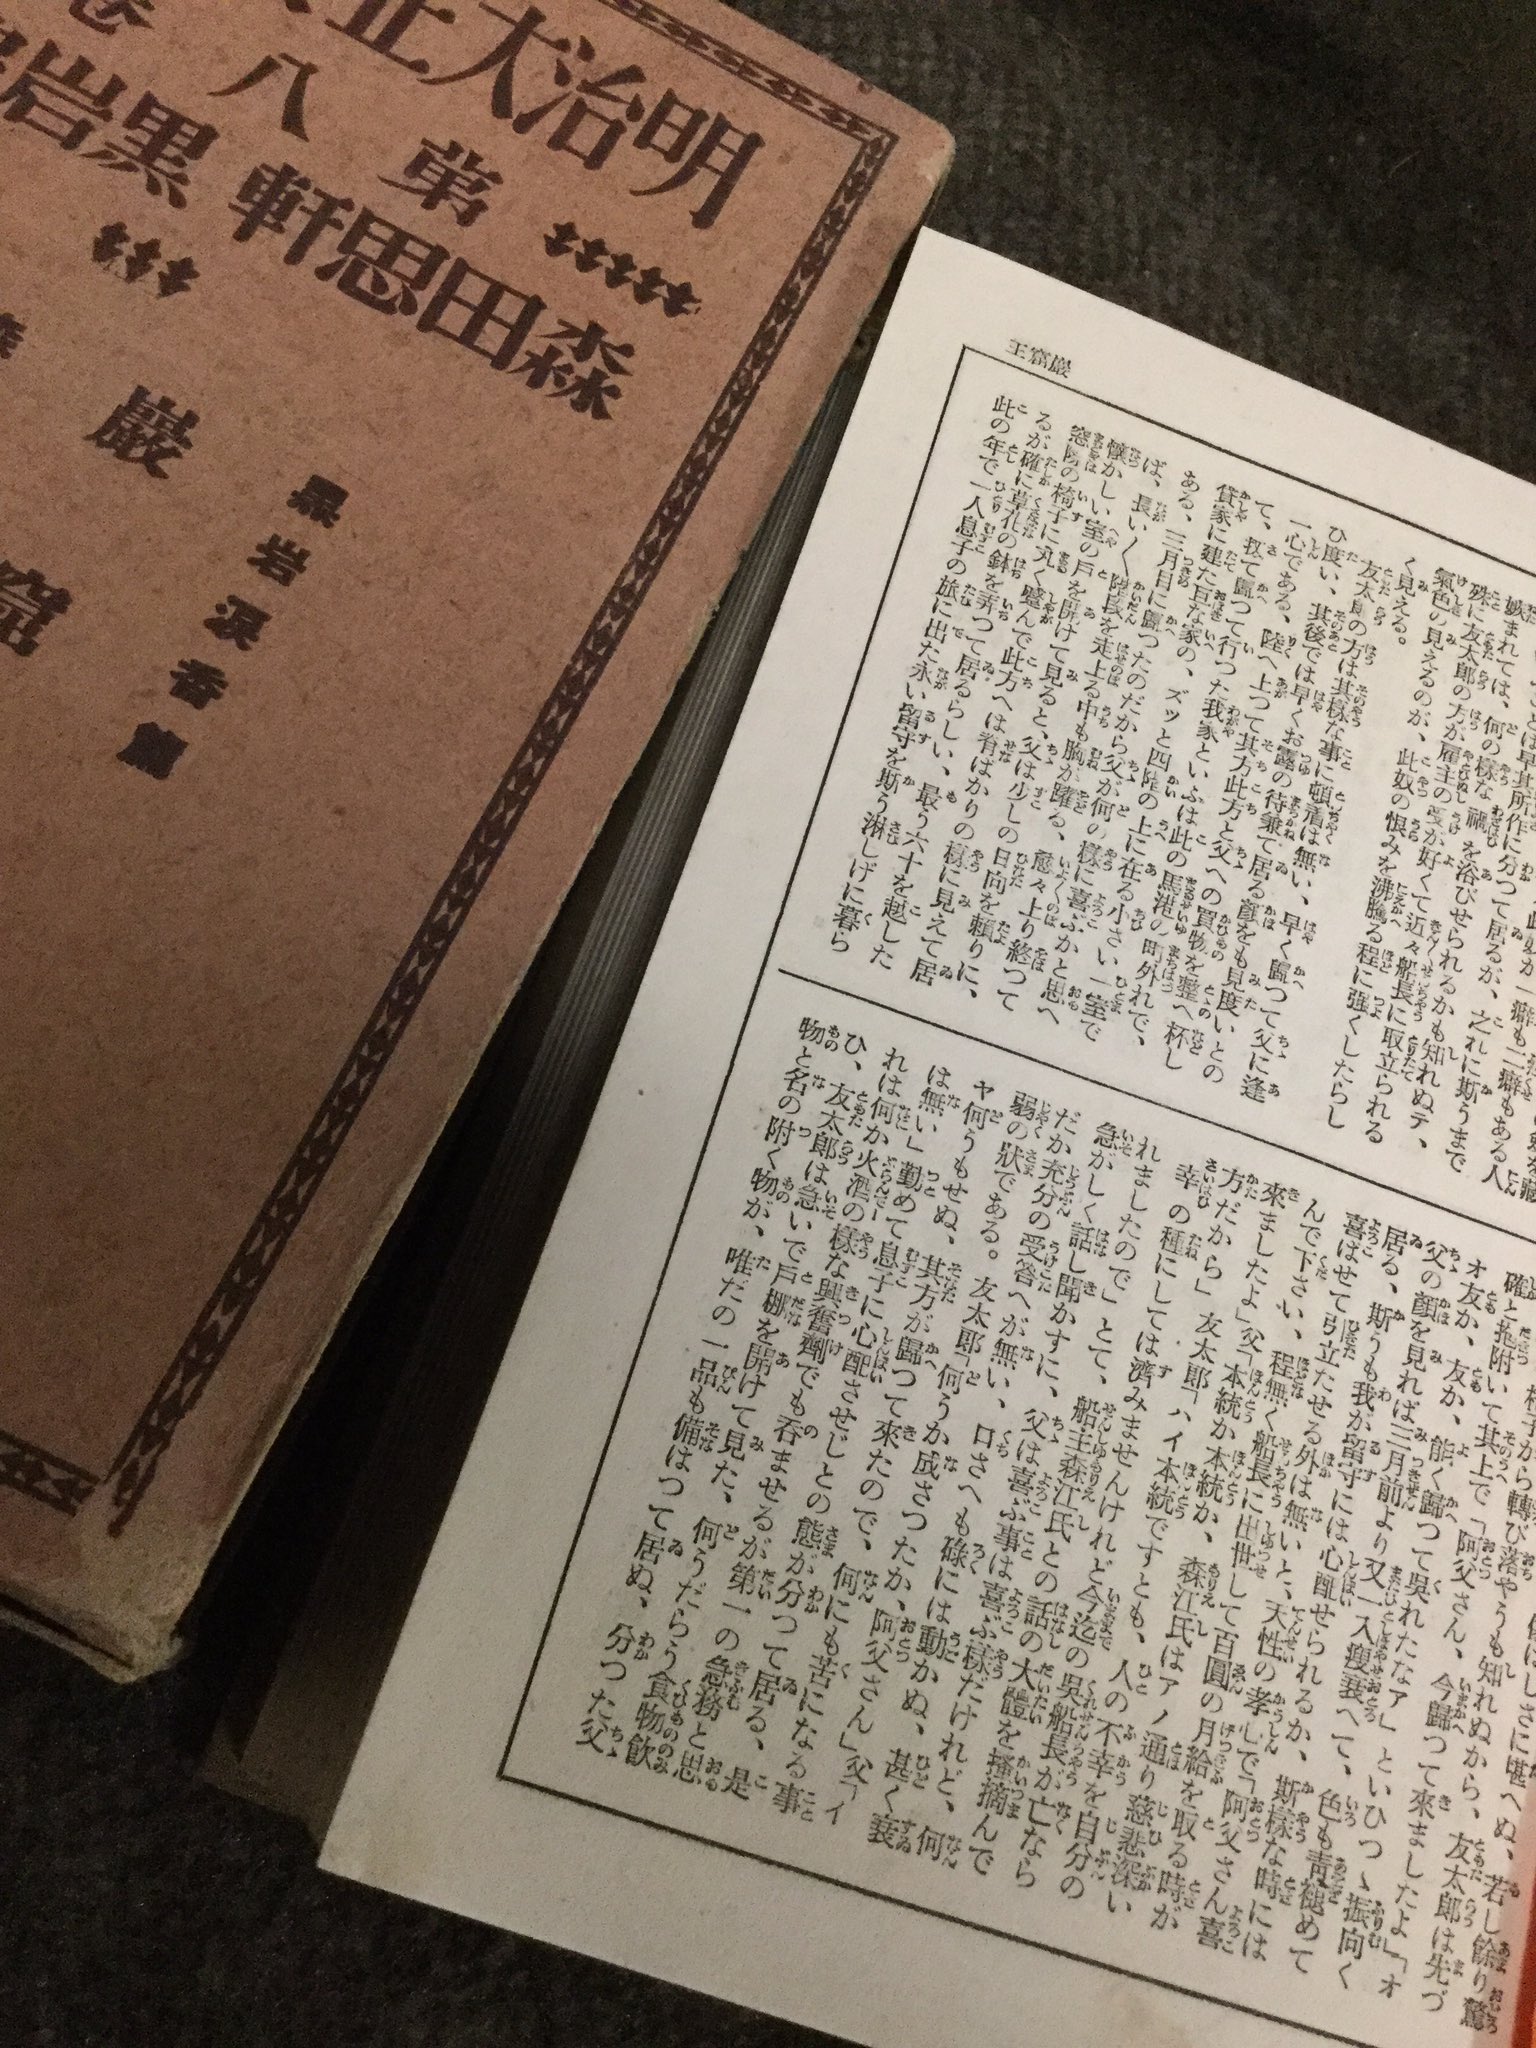 明治大正
第八
森田思軒 黒岩
黒岩涙香篇
巖窟
巖窟王
殊に友太郎の方が雇主の受が好くて近々船長に取立られる
氣色の見えるのが、此奴の恨みを沸騰る程に强くしたらし
く見える。
友太郎の方は其樣な事に頓着は無い、早く歸つて父に逢
ひ度い、其後では早くお露の待兼て居る顏をも見度いとの
一心である、陸へ上つて其方此方と父への買物を整へ杯し
て、扨て歸つて行つた我家といふは此の馬港の町外れで、
貸家に建た亘な家の、ズッと四階の上に在る小さい一室で
ある、三月目に歸つたのだから父が何の樣に喜ぶかと思へ
ば、長い〱階段を走上る中も胸が躍る、愈々上り終つて
懷かしい室の戶を開けて見ると、父は少しの日向を賴りに、
窓際の椅子に丸く蹙んで此方へは脊ばかりの樣に見えて居
るが確に草花の鉢を弄つて居るらしい、最う六十を越した
此の年で一人息子の旅に出た永い留守を斯う淋しげに暮ら
確と抱附いて其上で「阿父さん、今歸つて來ましたよ」「オ
オ友か、友か、能く歸つて吳れたなア」といひつゝ振向く
父の顏を見れば三月前より又一入瘦衰へて、色も靑褪めて
居る、斯うも我が留守には心配せられるか、斯樣な時には
喜ばせて引立たせる外は無いと、天性の孝心で「阿父さん喜
んで下さい、程無く船長に出世して百圓の月給を取る時が
來ましたよ」父「本統か本統か、森江氏はアノ通り慈悲深い
方だから」友太郎「ハイ本統ですとも、人の不幸を自分の
幸の種にしては濟みませんけれど今迄の吳船長が亡なら
れましたので」とて、船主森江氏との話の大體を搔摘んで
急がしく話し聞かすに、父は喜ぶ事は喜ぶ樣だけれど、何
だか充分の受答へが無い、口さへも碌には動かぬ、甚く衰
弱の狀である。友太郎「何うか成さつたか、阿父さん」父「イ
ヤ何うもせぬ、其方が歸つて來たので、何にも苦になる事
は無い」勤めて息子に心配させじとの態が分つて居る、是
れは何か火酒の樣な興奮劑でも吞ませるが第一の急務と思
ひ、友太郎は急いで戶棚を開けて見た、何うだらう食物飮
物と名の附く物が、唯だの一品も備はつて居ぬ、分つた父